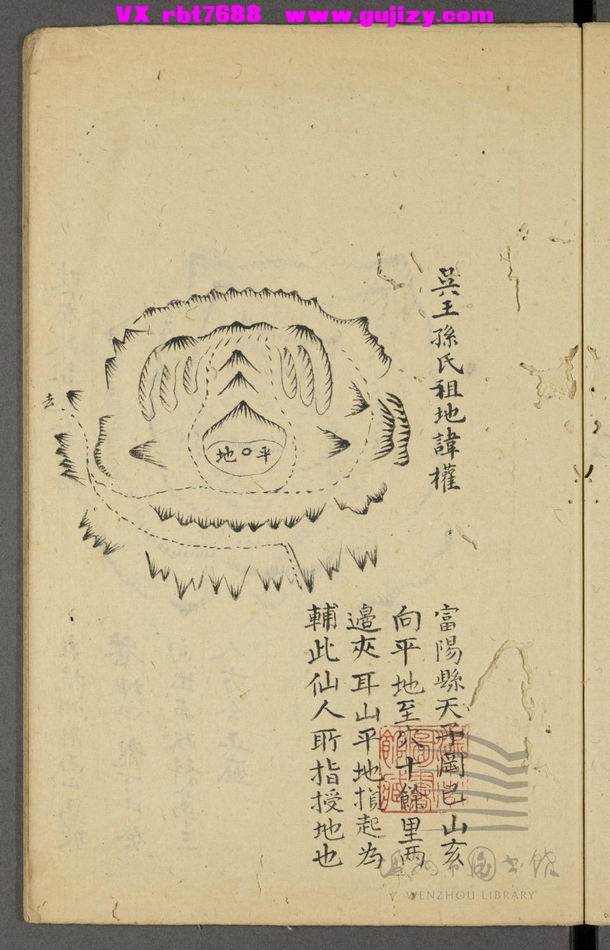 VX rbt7688 www.gujizy.com
吳王孫氏祖地諱權
去
平地
富陽縣天子岡巳山亥
向平地至水十餘里两
邊夾耳山平地起为
輔此仙人所指授地也
温州市图书馆
WENZHOU LIBRARY